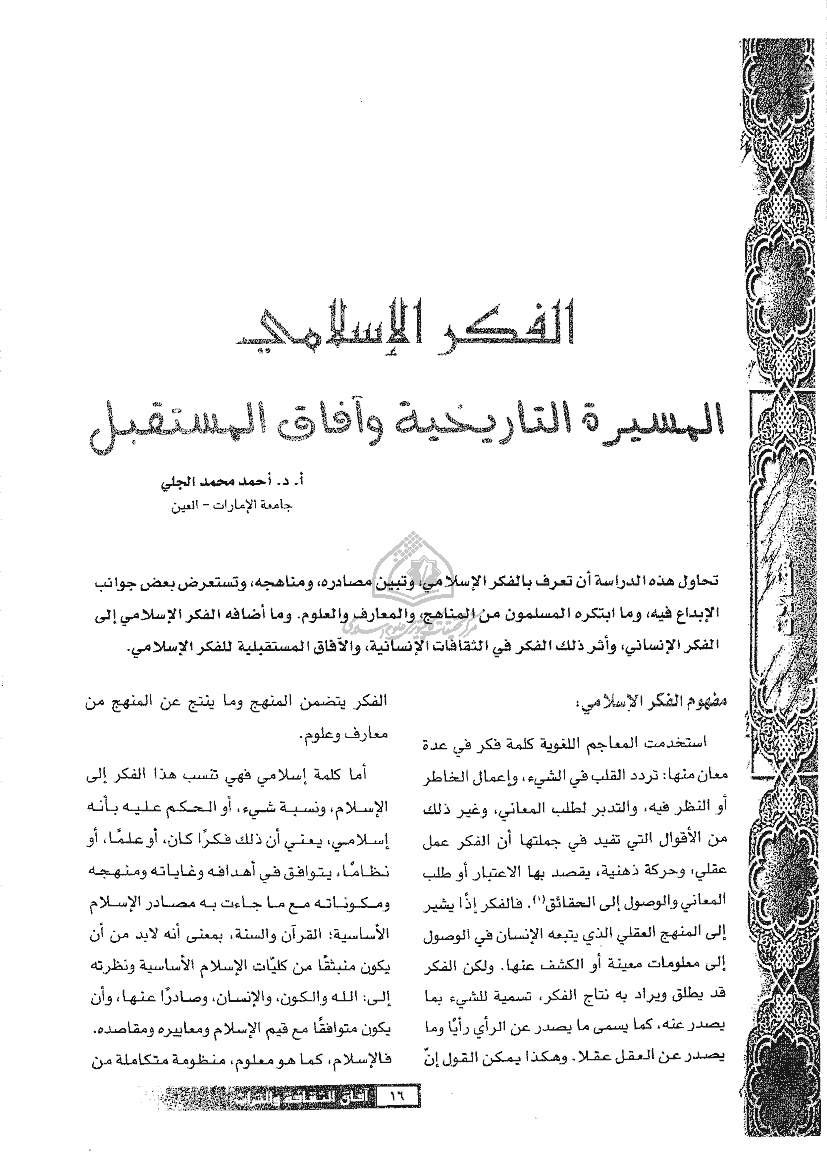 الفكر الإسلامي
المسيرة التاريخية وآفاق المستقبل
أ. د. أحمد محمد الجلي
جامعة الإمارات - العين
تحاول هذه الدراسة أن تعرف بالفكر الإسلامي، وتبين مصادره، ومناهجه، وتستعرض بعض جوانب
الإبداع فيه، وما ابتكره المسلمون من المناهج، والمعارف والعلوم. وما أضافه الفكر الإسلامي إلى
الفكر الإنساني، وأثر ذلك الفكر في الثقافات الإنسانية، والآفاق المستقبلية للفكر الإسلامي.
مفهوم الفكر الإسلامي:
استخدمت المعاجم اللغوية كلمة فكر في عدة
معان منها: تردد القلب في الشيء، وإعمال الخاطر
أو النظر فيه، والتدبر لطلب المعاني، وغير ذلك
من الأقوال التي تفيد في جملتها أن الفكر عمل
عقلي، وحركة ذهنية، يقصد بها الاعتبار أو طلب
المعاني والوصول إلى الحقائق(١). فالفكر إذًا يشير
إلى المنهج العقلي الذي يتبعه الإنسان في الوصول
إلى معلومات معينة أو الكشف عنها. ولكن الفكر
قد يطلق ويراد به نتاج الفكر، تسمية للشيء بما
يصدر عنه، كما يسمى ما يصدر عن الرأي رأيًا وما
يصدر عن العقل عقلا. وهكذا يمكن القول إنّ
الفكر يتضمن المنهج وما ينتج عن المنهج من
معارف وعلوم.
أما كلمة إسلامي فهي تنسب هذا الفكر إلى
الإسلام، ونسبة شيء، أو الحكم عليه بأنه
إسلامي، يعني أن ذلك فكرًا كان، أو علمًا، أو
نظامًا، يتوافق في أهدافه وغاياته ومنهجه
ومكوناته مع ما جاءت به مصادر الإسلام
الأساسية: القرآن والسنة، بمعنى أنه لابد من أن
يكون منبثقًا من كليّات الإسلام الأساسية ونظرته
إلى: الله والكون، والإنسان، وصادرًا عنها، وأن
يكون متوافقًا مع قيم الإسلام ومعاييره ومقاصده.
فالإسلام، كما هو معلوم، منظومة متكاملة من
١٦ آفاق الثقافة والتراث